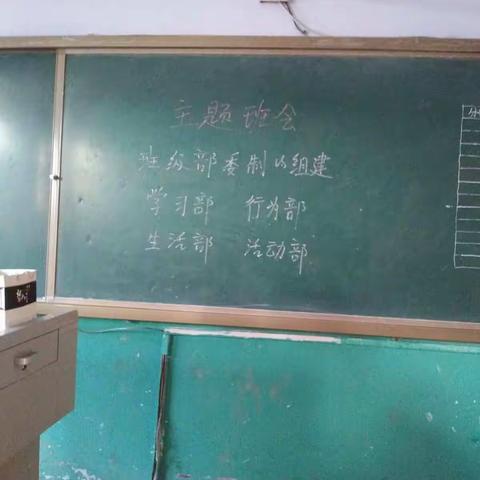 主题班会
班级部委制的组建
学习部 行为部
生活部 活动部